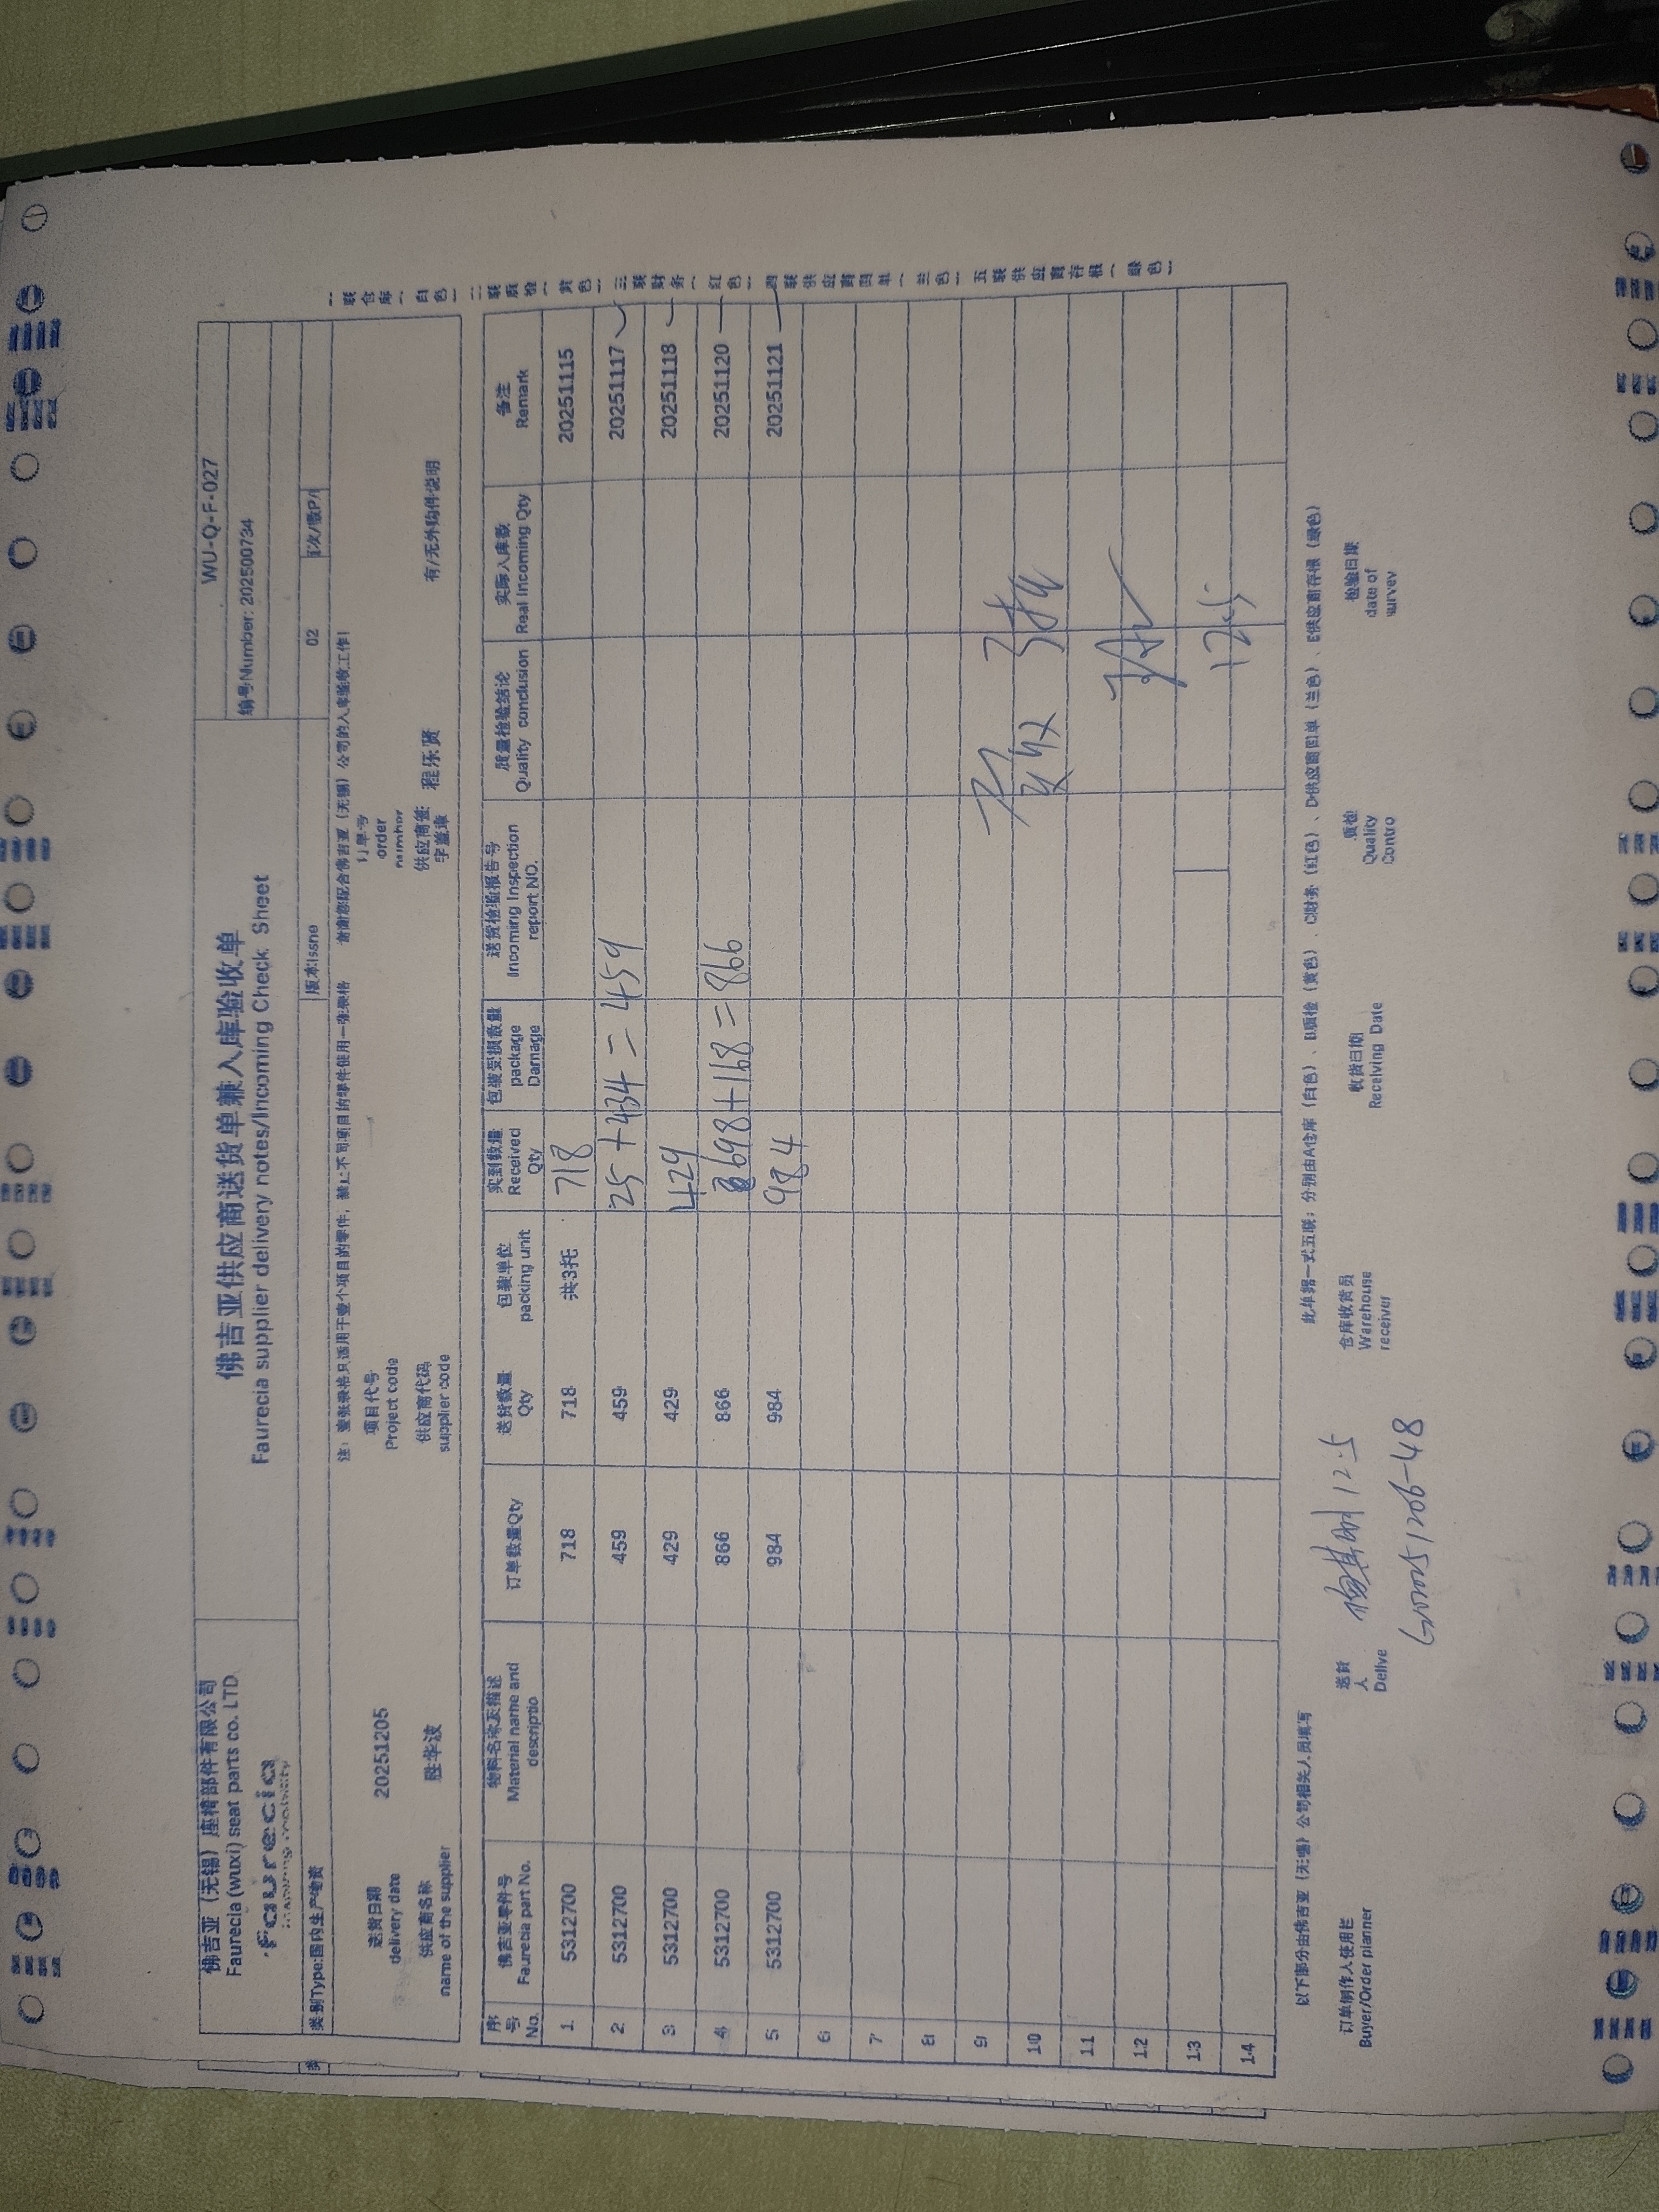 佛吉亚（无锡）座椅部件有限公司
Faurecia (wuxi) seat parts co. LTD
faurecia
佛吉亚供应商送货单兼入库验收单
Faurecia supplier delivery notes/Incoming Check Sheet
WU-Q-F-027
编号Number: 202500734
类别Type:国内生产物资
版本Issne
02
注：壹张表格只适用于壹个项目的零件，禁止不同项目的零件使用一张表格 谢谢您配合佛吉亚（无锡）公司的入库验收工作!
送货日期
delivery date
20251205
项目代号
Project code
订单号
order
number
供应商名称
name of the supplier
胜华波
供应商代码
supplier code
供应商签
字盖章
程乐贤
有/无外购件说明
序号 No. 佛吉亚零件号 Faurecia part No. 物料名称及描述 Material name and descriptio 订单数量Qty 送货数量 Qty 包装单位 packing unit 实到数量 Received Qty 包装受损数量 package Damage 送货检验报告号 Incoming Inspection report NO. 质量检验结论 Quality conclusion 实际入库数 Real Incoming Qty 备注 Remark
1 5312700 718 718 共3托 718 20251115
2 5312700 459 459 25+434=459 20251117
3 5312700 429 429 429 20251118
4 5312700 866 866 698+168=866 20251120
5 5312700 984 984 984 20251121
6
7
8
9
10
11
12
13
14
12.5
一联仓库（白色）二联质检（黄色）三联财务（红色）四联供应商回单（兰色）五联供应商存根（绿色）
以下部分由佛吉亚（无锡）公司相关人员填写
此单据一式五联；分别由A仓库（白色）、B质检（黄色）、C财务（红色）、D供应商回单（兰色）、E供应商存根（绿色）
订单制作人使用栏
Buyer/Order planner
送货
人
Delive
12.5
仓库收货员
Warehouse
receiver
收货日期
Receiving Date
质检
Quality
Contro
检验日期
date of
survey